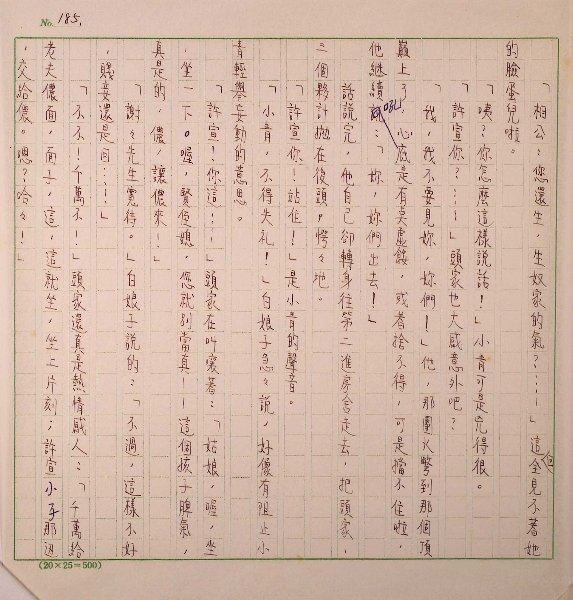 No. 185.
的臉蛋兒啦。
「相公?您還生,生奴家的氣?⋯⋯」這會見不著她
「咦?你怎麼這樣說話!」小青可是兇得很。
「許宣你?⋯⋯」頭家也大感意外吧?
「我,我不要見妳,妳們!」他,那團火彎到那個頂
巔上了,心底是有莫虛餒,或者捨不得,可是擋不住啦,
他繼續說:「妳,妳們出去!」
話說完,他自己卻轉身往第二進房舍走去,把頭家,
三個夥計拋在後頭,愕々地。
「許宣你!站住!」是小青的聲音。
「小青,不得失礼!」白娘子急々說,好像有阻止小
青輕舉妄動的意思。
「許宣!你這!⋯」頭家在叫嚷著:「姑娘,喔,坐
,坐一下。喔,賢侄媳,您就別當真!——這個孩子脾氣,
真是的,儂,讓儂來!」
「謝々先生寬待。」白娘子說的:「不過,這樣不好
,賤妾還是自⋯⋯」
「不不!千萬不!」頭家還真是熱情感人:「千萬給
老夫儂面,面子,這,這就坐,坐上片刻;許宣小子那迅
,交給儂。嗯?哈々!」
(20×25=500)